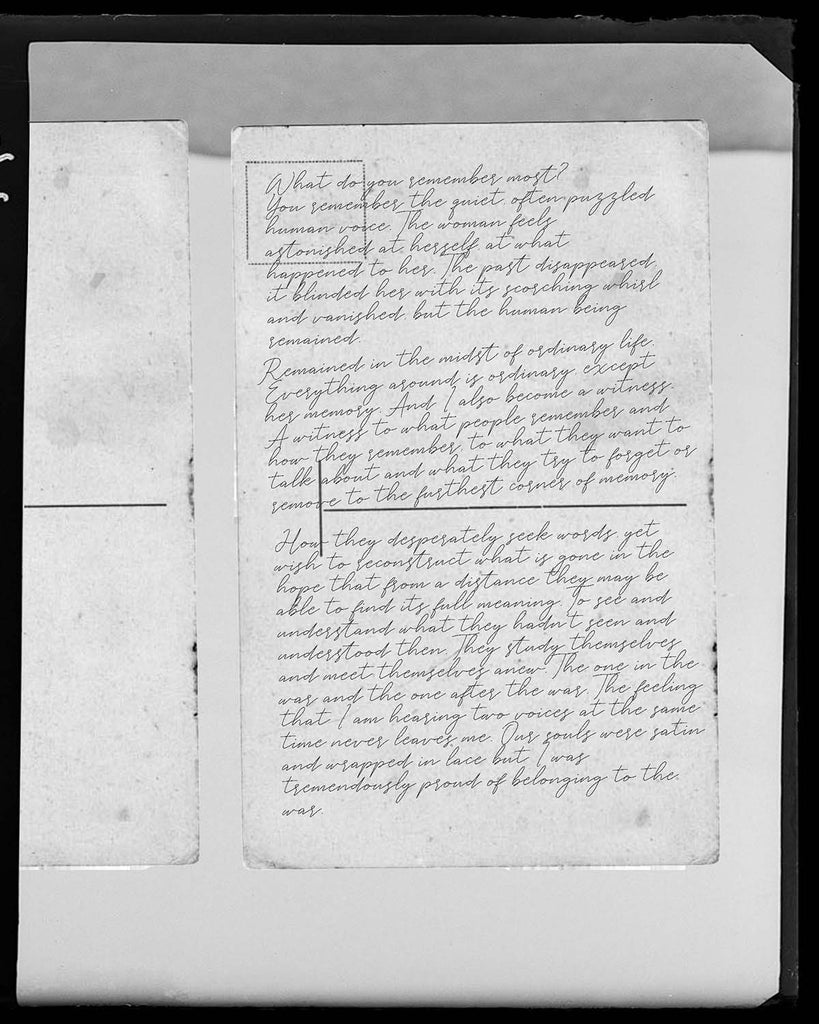 What do you remember most?
You remember the quiet, often puzzled
human voice. The woman feels
astonished at herself, at what
happened to her. The past disappeared,
it blinded her with its scorching whirl
and vanished, but the human being
remained.
Remained in the midst of ordinary life.
Everything around is ordinary except
her memory. And I also become a witness.
A witness to what people remember and
how they remember, to what they want to
talk about and what they try to forget or
remove to the furthest corner of memory.
How they desperately seek words, yet
wish to reconstruct what is gone in the
hope that from a distance they may be
able to find its full meaning. To see and
understand what they hadn't seen and
understood then. They study themselves
and meet themselves anew. The one in the
war and the one after the war. The feeling
that I am hearing two voices at the same
time never leaves me. Our souls were satin
and wrapped in lace but I was
tremendously proud of belonging to the
war.